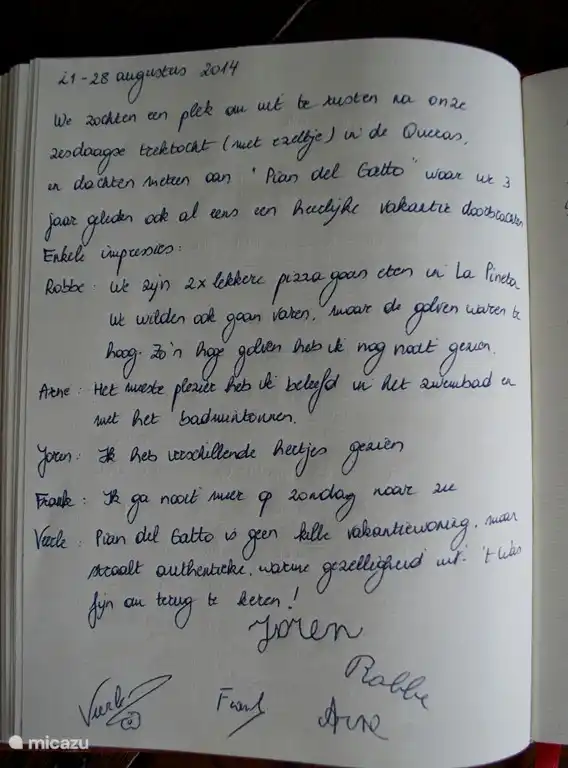 21-28 augustus 2014
We zochten een plek om uit te rusten na onze
zesdaagse trektocht (met ezeltje) in de Queras,
en dachten meteen aan "Pian del Gatto" waar we 3
jaar geleden ook al eens een heerlijke vakantie doorbrachten
Enkele impressies:
Robbe: We zijn 2x lekkere pizza gaan eten in La Pineta
We wilden ook gaan varen, maar de golven waren te
hoog. Zo'n hoge golven heb ik nog nooit gezien.
Arne: Het meeste plezier heb ik beleefd in het zwembad en
met het badmintonnen.
Joren: Ik heb verschillende hertjes gezien
Frank: Ik ga nooit meer op zondag naar zee
Veerle: Pian del Gatto is geen kille vakantiewoning, maar
straalt authentieke, warme gezelligheid uit! 't Was
fijn om terug te keren!
Joren
Robbe
Veerle Frank Arne
micazu